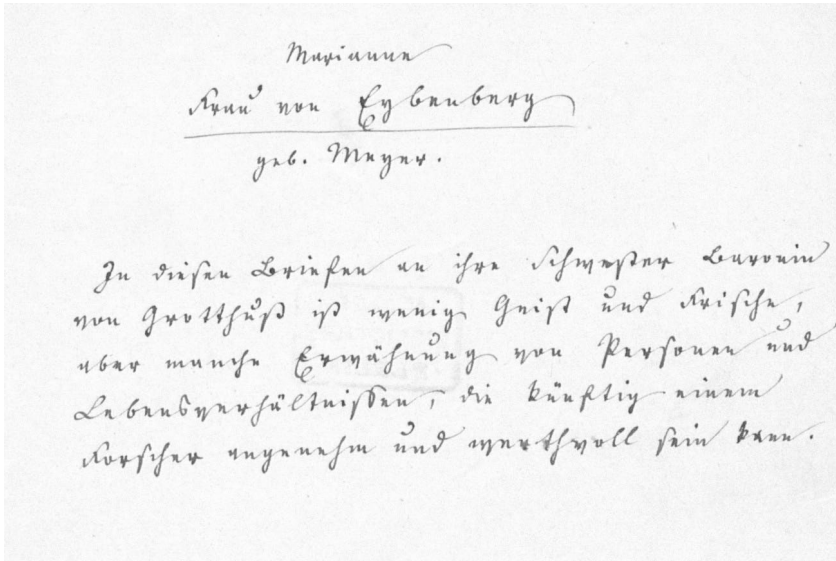 Marianne
Frau von Eybenberg
geb. Meyer.
In diesen Briefen an ihre Schwester Baronin
von Grotthuß ist wenig Geist und Frische,
aber manche Erwähnung von Personen und
Lebensverhältnissen, die künftig einem
Forscher angenehm und werthvoll sein kann.